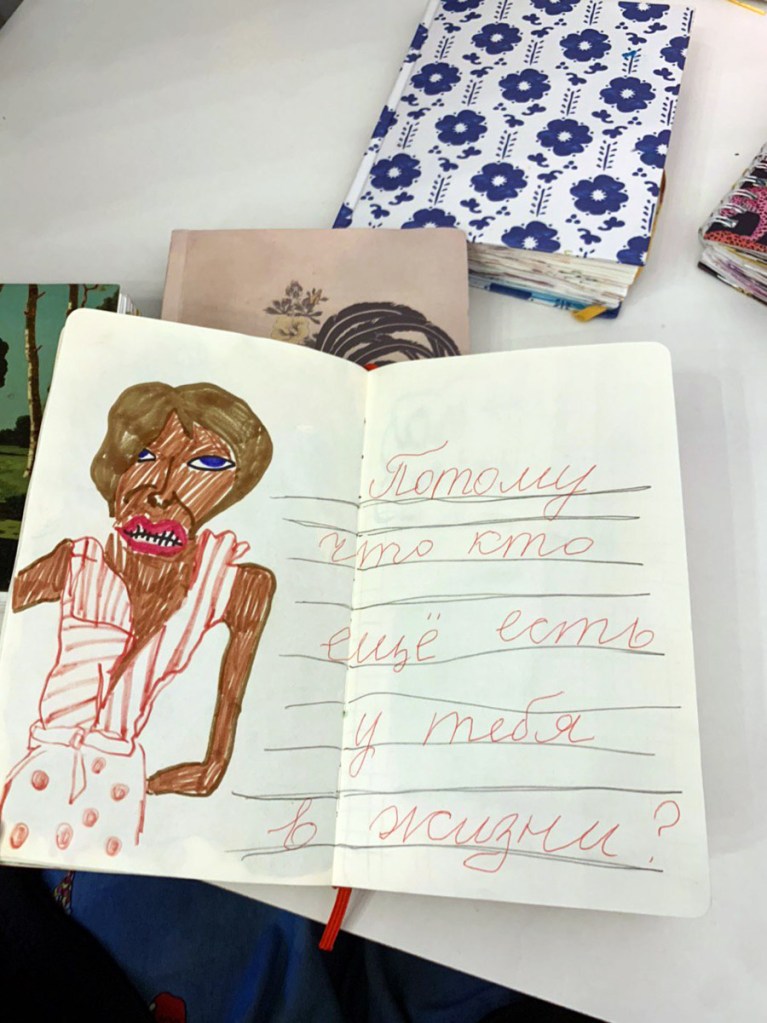 Потому
что кто
ещё есть
у тебя
в жизни?